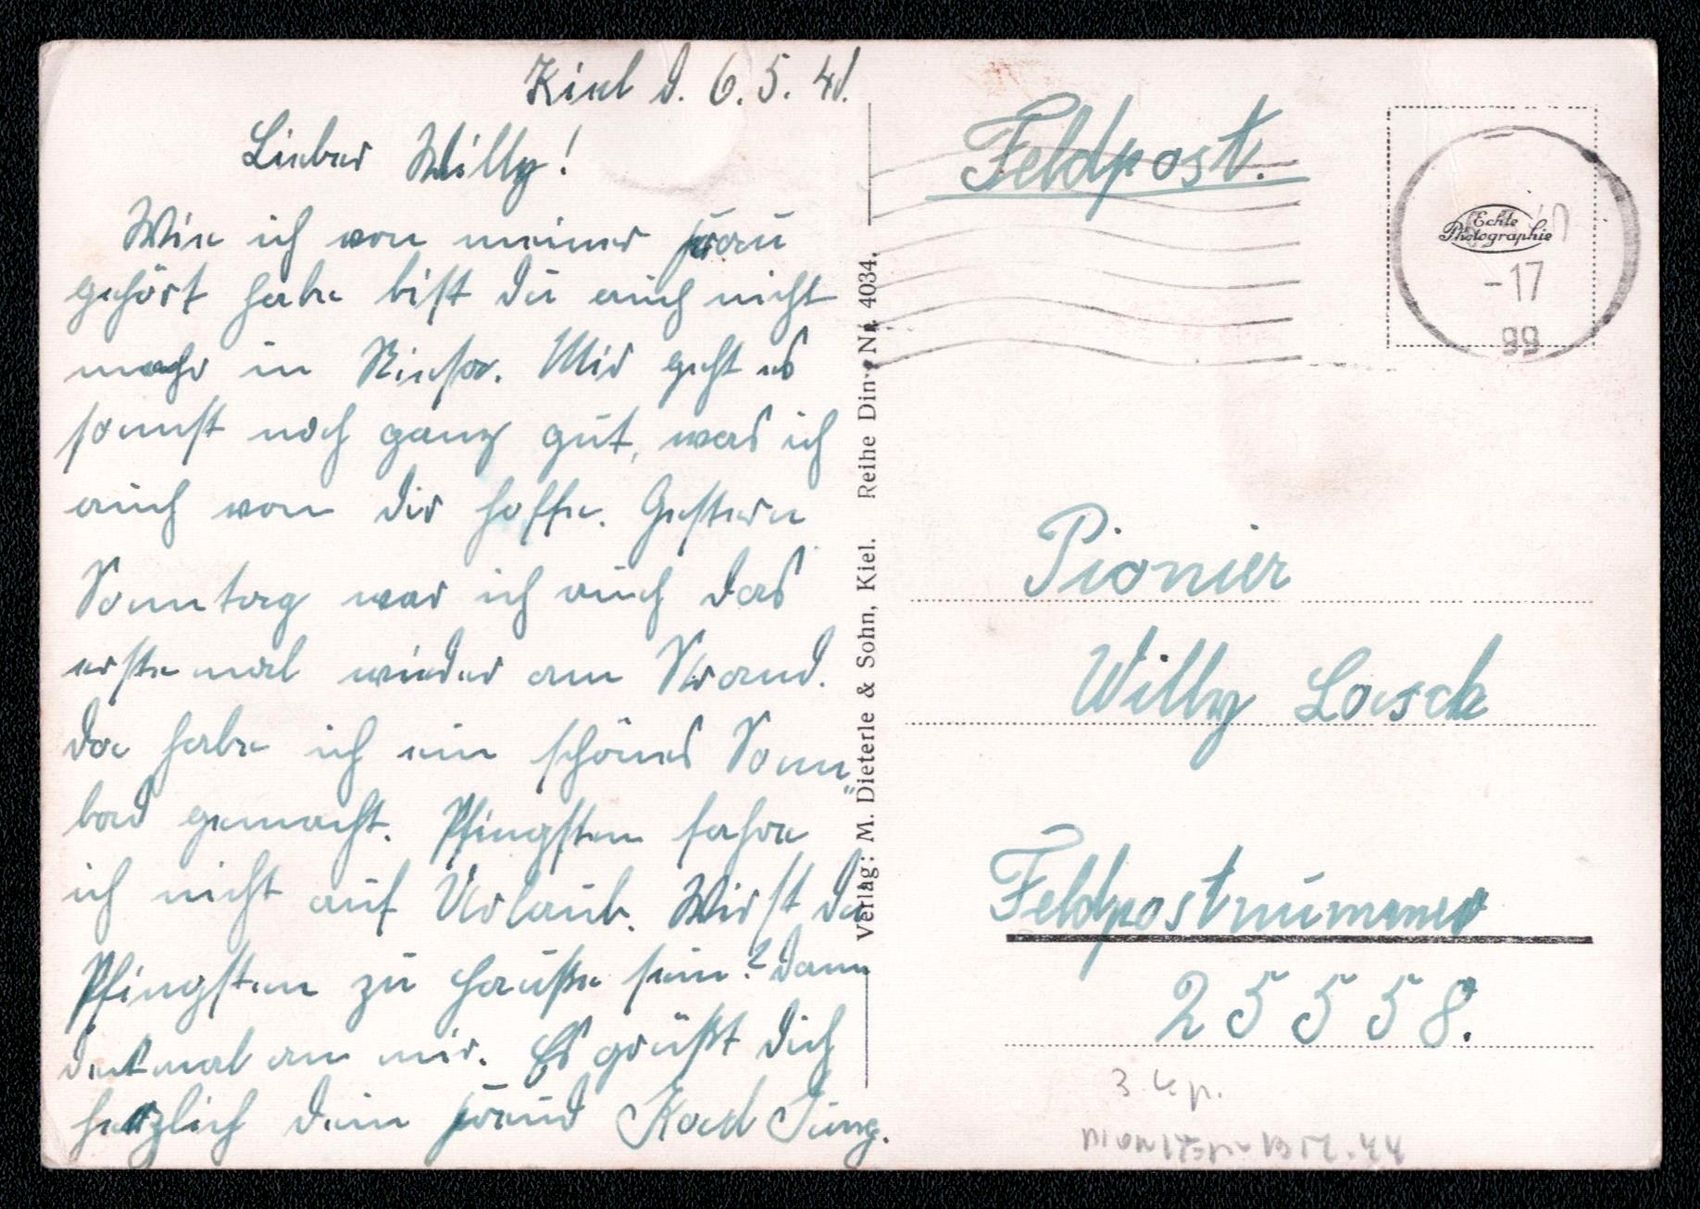 Kiel d. 6.5.40.
Lieber Willy!
Wie ich von meiner Frau
gehört habe bist du auch nicht
mehr in Riesa. Mir geht es
sonnst noch ganz gut, was ich
auch von dir hoffe. Gestern
Sonntag war ich auch das
erste mal wieder am Strand.
da habe ich ein schönes Sonn„
bad gemacht. Pfingsten fahre
ich nicht auf Urlaub. Wirst du
Pfingsten zu Hauße sein? dann
denk mal an mir. Es grüßt dich
herzlich dein Freund Karl Jung.
Verlag: M. Dieterle & Sohn, Kiel. Reihe Din-Nr. 4034.
Feldpost.
Echte
Photographie
-17
99
Pionier
Willy Loesch
Feldpostnummer
25558.
3. Kp.